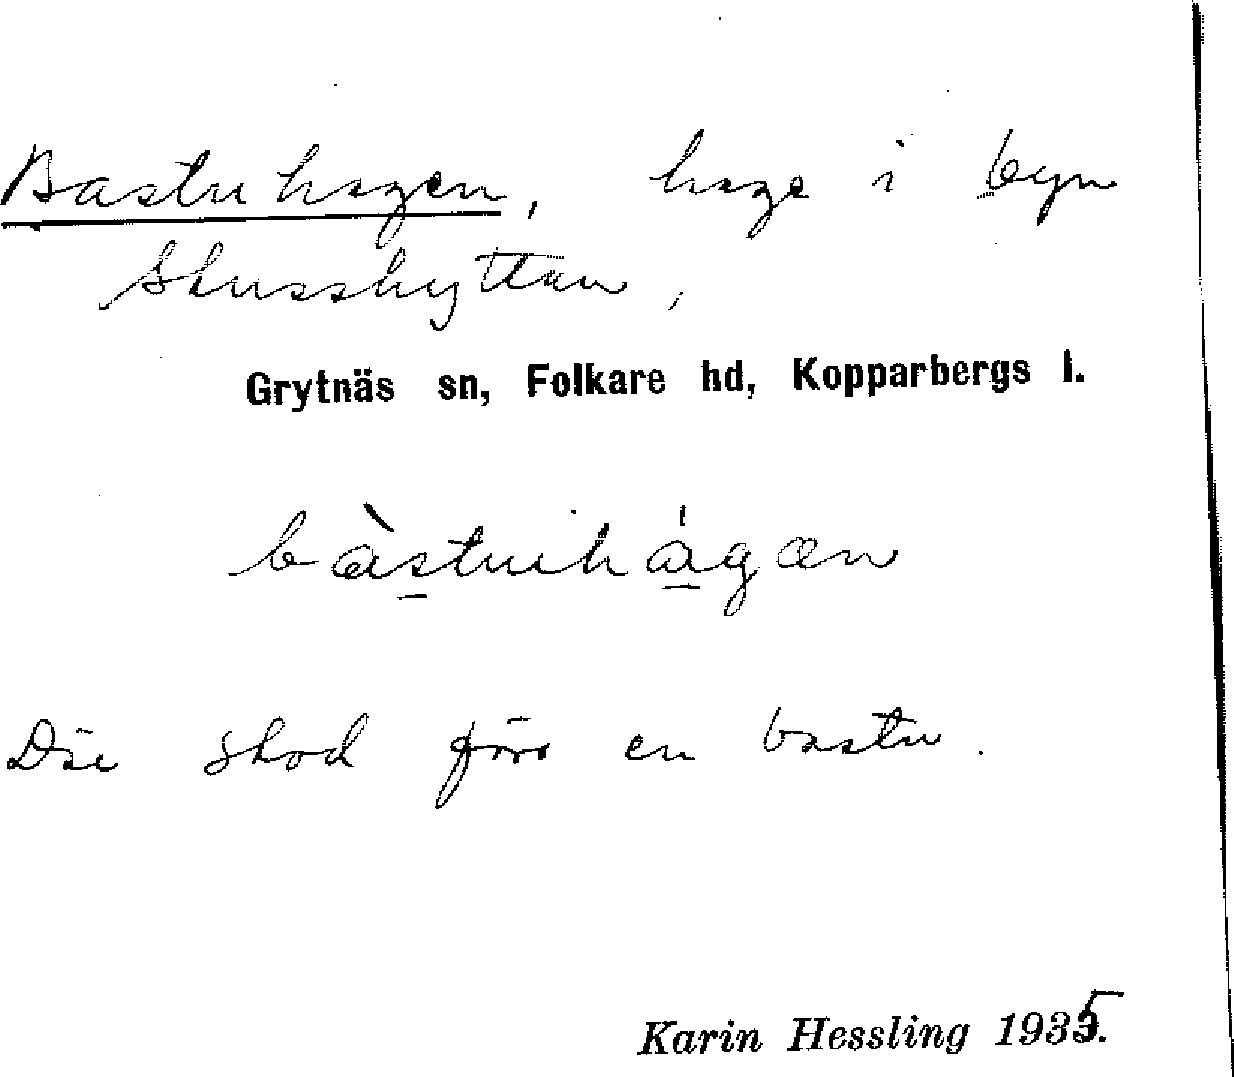 Bastuhagen, hage i byn
Skusshyttan,
Grytnäs sn, Folkare hd, Kopparbergs l.
bàstuihágæn
Där stod förr en bastu.
Karin Hessling 1935.